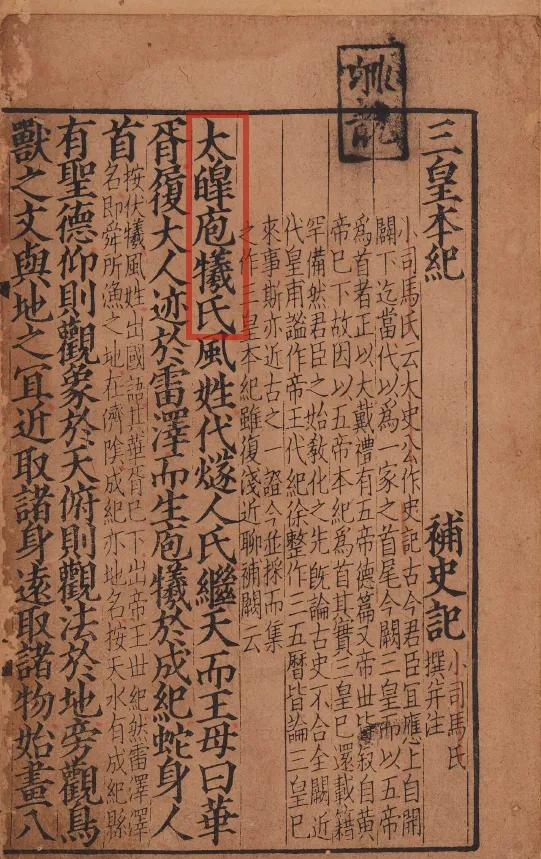 三皇本紀 補史記 小司馬氏
撰并注
小司馬氏云大史公作史記古今君臣宜應上自開
闢下迄當代以為一家之首尾今闕三皇而以五帝
為首者正以大戴禮有五帝德篇又帝世皆叙自黃
帝已下故因以五帝本紀為首其實三皇已還載籍
罕備然君臣之始教化之先旣論古史不合全闕近
代皇甫謐作帝王代紀徐整作三五曆皆論三皇已
來事斯亦近古之一證今並採而集
之作三皇本紀雖復淺近聊補闕云
大皥庖犧氏風姓代燧人氏繼天而王母曰華
胥履大人迹於雷澤而生庖犧於成紀蛇身人
首 按伏犧風姓出國語其華胥已下出帝王世紀然雷澤澤
名即舜所漁之地在濟陰成紀亦地名按天水有成紀縣
有聖德仰則觀象於天俯則觀法於地旁觀鳥
獸之文與地之冝近取諸身遠取諸物始畫八